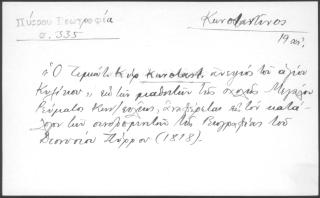 Πύρρου Γεωγραφία
σ. 335
Κωνσταντῖνος
19 αἰ.
"Ὁ Κύρ Κωνσταντ. ἀνεψιὸς τοῦ ἁγίου
" ἐκ τῶν μαθητῶν τῆς σχολῆς Μεγάλου
Ρεύματος Κων/πόλεως, ἀναφέρεται εἰς τὸν κατά-
λογον τῶν συνδρομητῶν τῆς Γεωγραφίας τοῦ
Διονυσίου Πύρρου (1818).